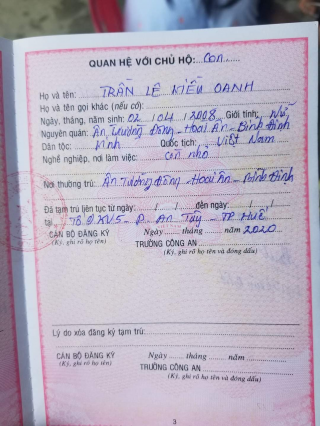 QUAN HỆ VỚI CHỦ HỘ: Con
Họ và tên: TRẦN LÊ KIỀU OANH
Họ và tên gọi khác (nếu có):
Ngày, tháng, năm sinh: 02 / 04 / 2008 Giới tính: Nữ
Nguyên quán: Ân Tường Đông - Hoài Ân - Bình Định
Dân tộc: Kinh Quốc tịch: Việt Nam
Nghề nghiệp, nơi làm việc: còn nhỏ
Nơi thường trú: Ân Tường Đông - Hoài Ân - Bình Định
Đã tạm trú liên tục từ ngày: / / đến ngày: / /
tại P. An Tây - TP Huế
CÁN BỘ ĐĂNG KÝ Ngày ...... tháng ...... năm 2020
(Ký, ghi rõ họ tên) TRƯỞNG CÔNG AN
(Ký, ghi rõ họ tên và đóng dấu)
Lý do xóa đăng ký tạm trú:
CÁN BỘ ĐĂNG KÝ Ngày ...... tháng ...... năm
(Ký, ghi rõ họ tên) TRƯỞNG CÔNG AN
(Ký, ghi rõ họ tên và đóng dấu)
3